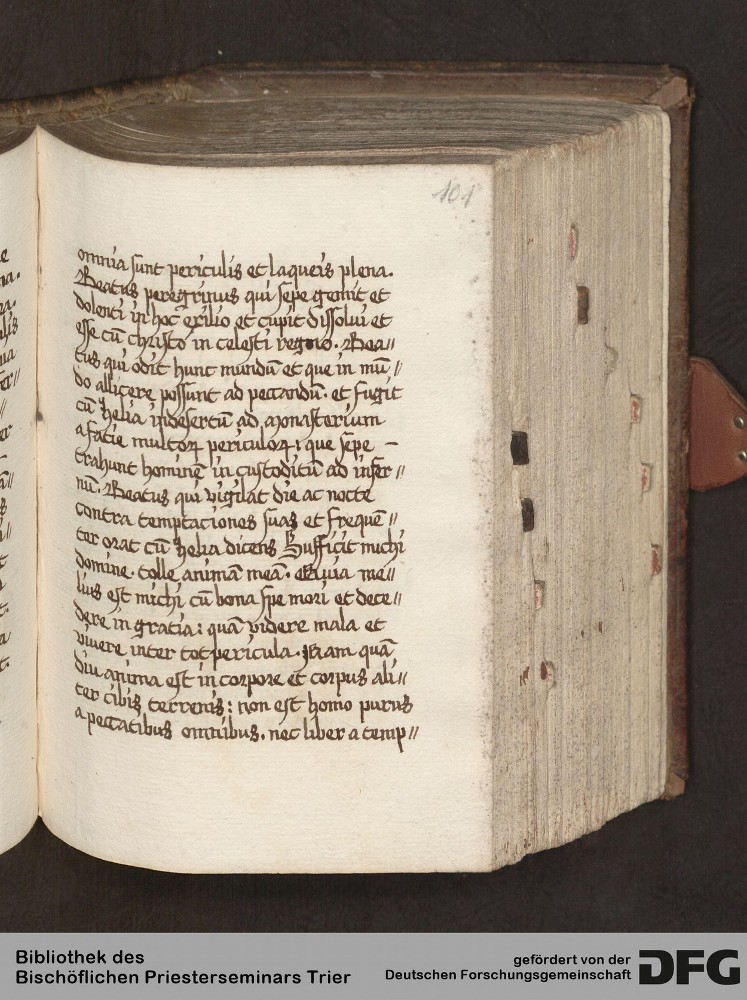 101
omnia sunt periculis et laqueis plena.
Beatus peregrinus qui sepe gemit et
dolenti in hoc exilio et cupit dissolui et
esse cū christo in celesti regno. Bea//
tus qui odit hunc mundū et que in mū//
do allicere possunt ad peccandū. et fugit
cū helia in desertū ad monasterium
a facie multoꝝ periculoꝝ: que sepe –
trahunt hominē in custoditū ad infer//
nū. Beatus qui vigilat die ac nocte
contra temptaciones suas et frequē//
ter orat cū helia dicens Sufficit michi
domine. tolle animā meā. Quia me//
lius est michi cū bona spe mori et dece//
dere in gratia: quā videre mala et
vivere inter tot pericula. Nam quā
diu anima est in corpore et corpus ali//
tur cibis terrenis: non est homo purus
a peccatibus omnibus. nec liber a temp//
Bibliothek des
Bischöflichen Priesterseminars Trier
gefördert von der
Deutschen Forschungsgemeinschaft
DFG